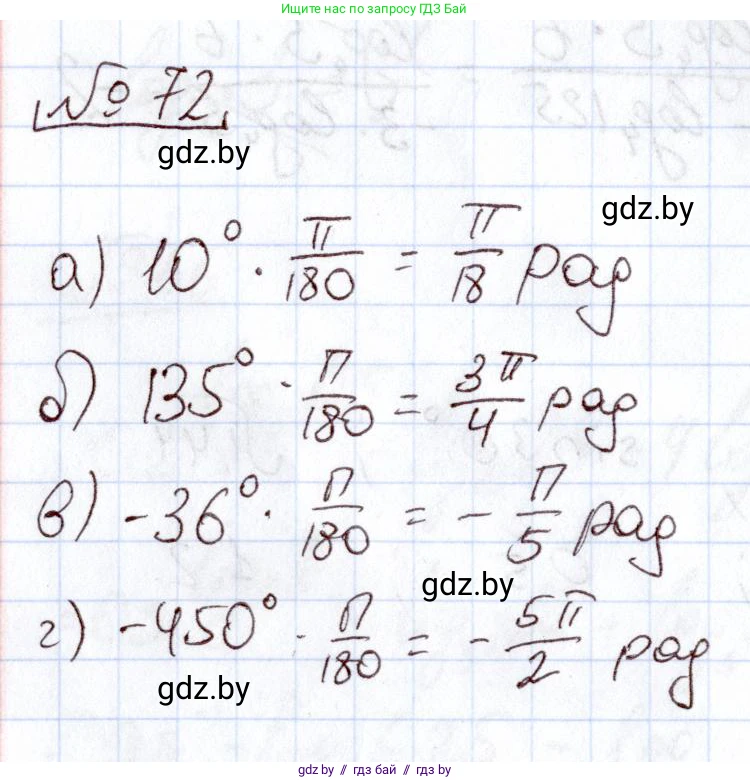 Ищите нас по запросу ГДЗ Бай
№ 72
gdz.by
gdz.by
а) 10° · π/180 = π/18 рад
б) 135° · π/180 = 3π/4 рад
в) -36° · π/180 = - π/5 рад
gdz.by
г) -450° · π/180 = - 5π/2 рад
gdz.by
gdz.by // гдз бай // гдз by